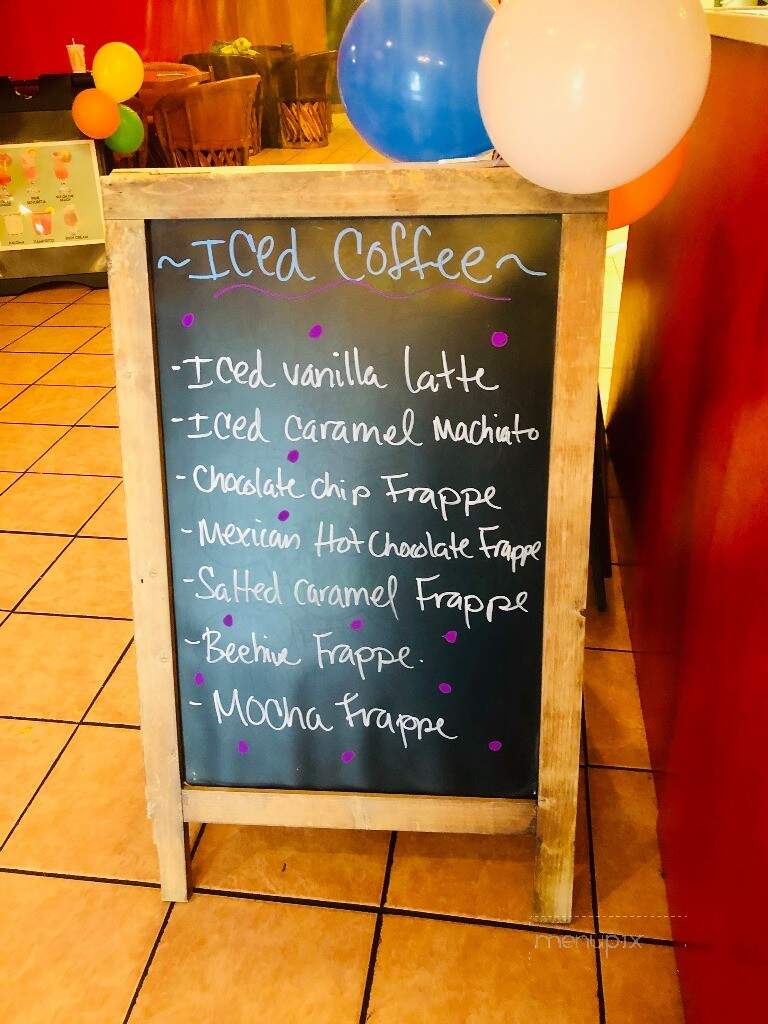 ~Iced Coffee~
-Iced vanilla latte
-Iced caramel Machiato
-Chocolate chip Frappe
-Mexican Hot Chocolate Frappe
-Salted caramel Frappe
-Beehive Frappe.
-Mocha Frappe
menupix